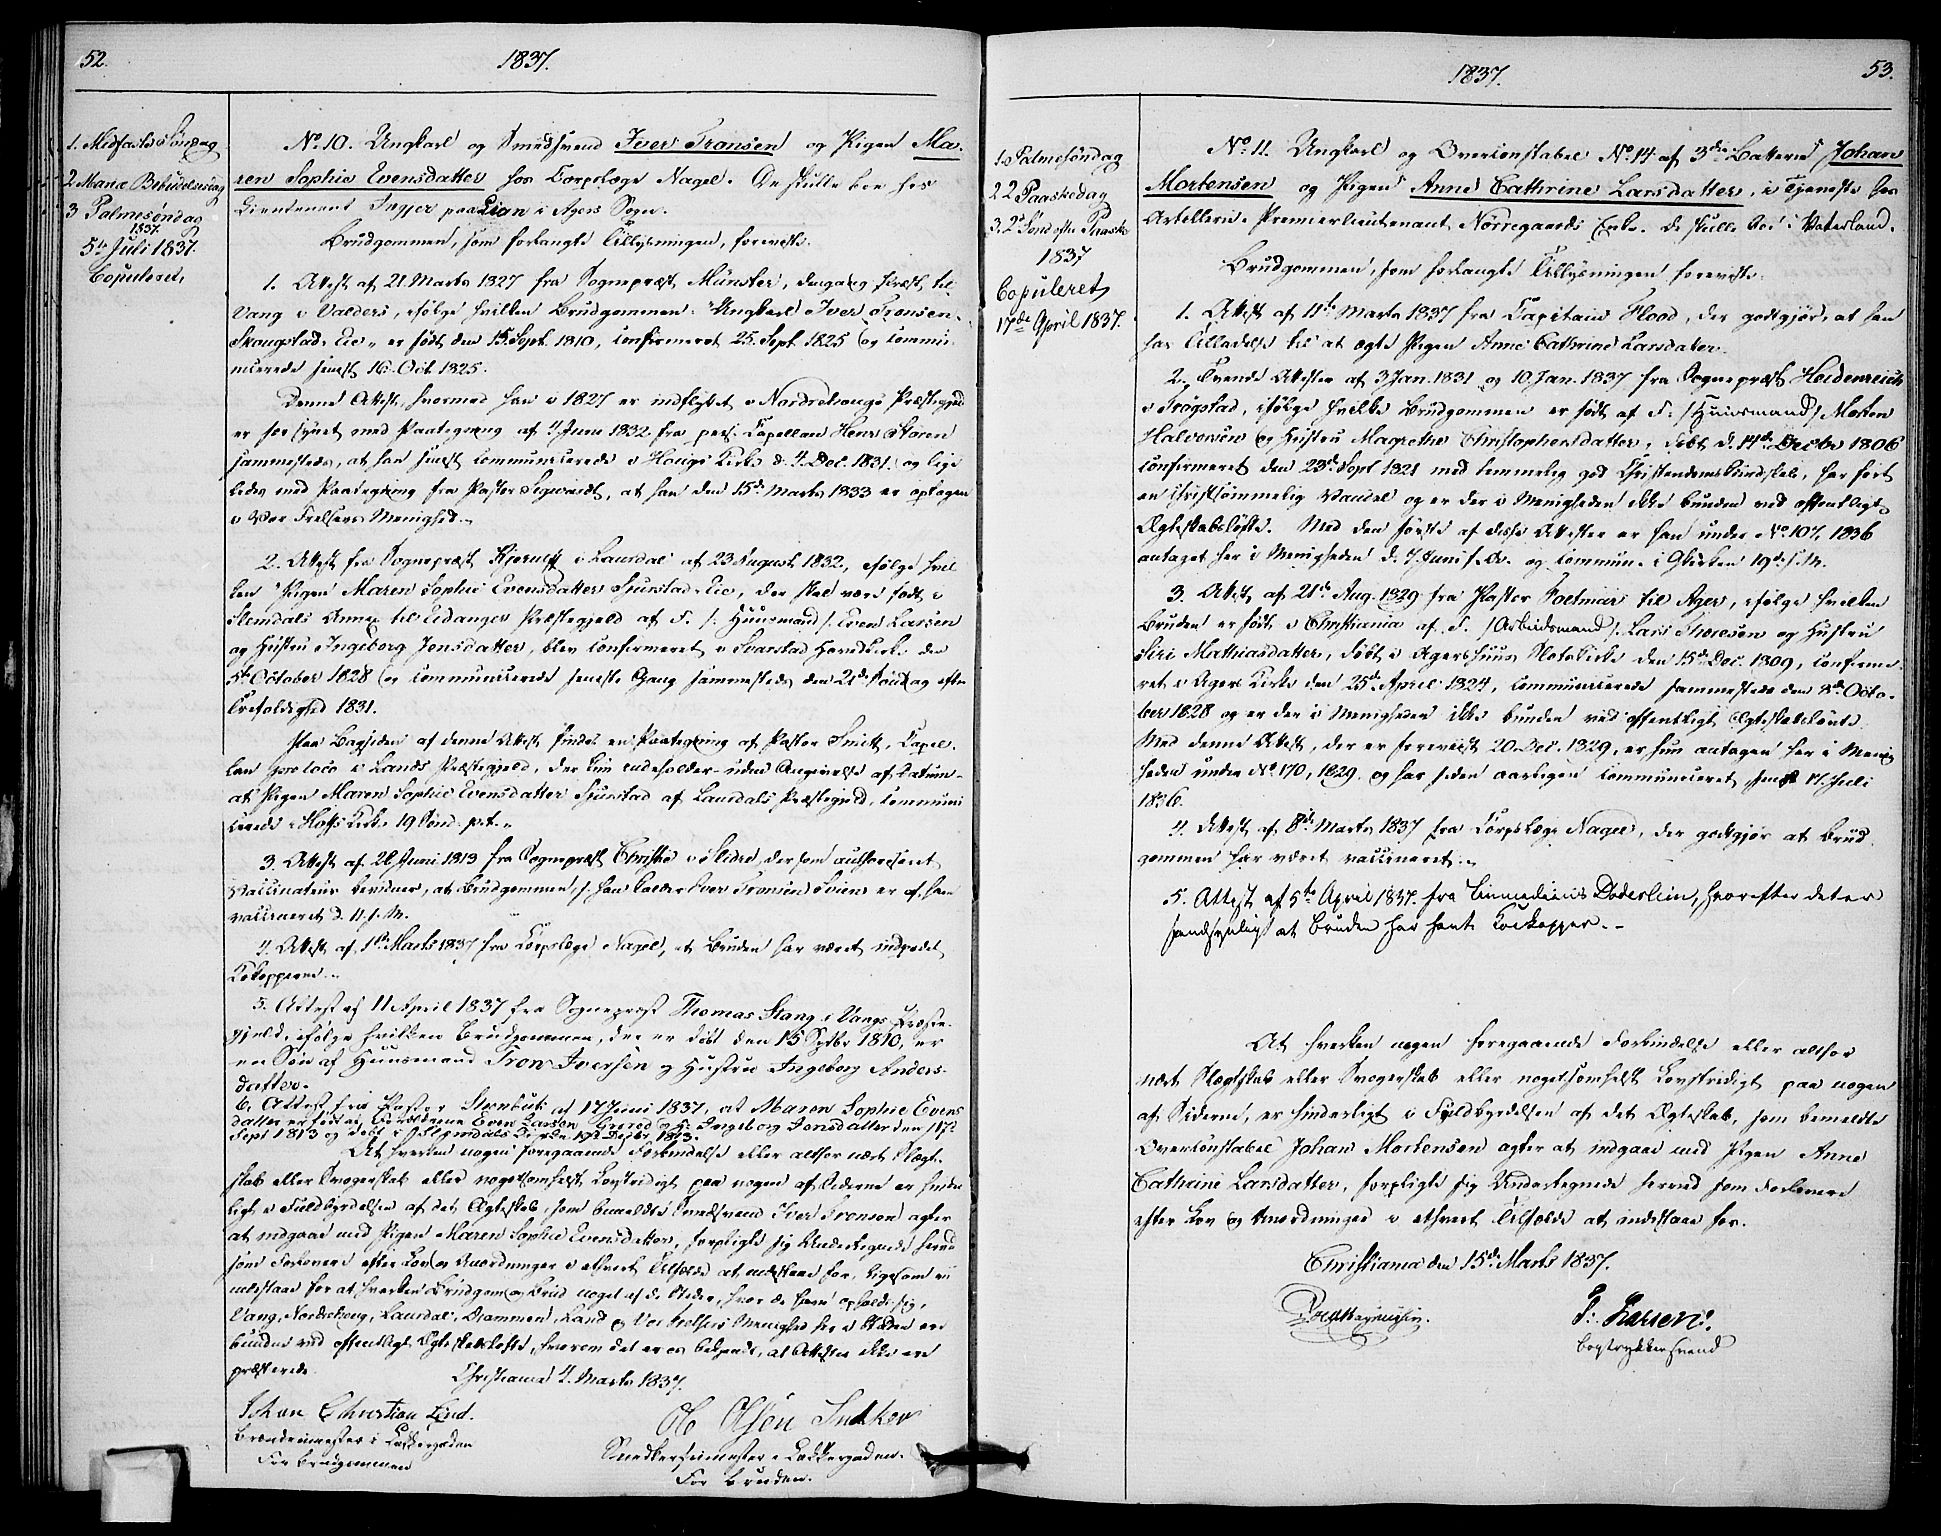 52.
1837.
1. Midfaste Søndag
2. Mariæ Bebudelsesdag
3 Palmesøndag
1837.
5te Juli 1837.
Copuleret,
No. 10. Ungkarl og Smedsvend Iver Tronsen og Pigen Ma-
ren Sophie Evensdatter hos Corpslæge Nagel. De skulle boe hos
Lieutenant paa Lian i Agers Sogn.
Brudgommen, som forlangte Tillysningen, foreviste:
1. Attest af 21. Marts 1827 fra Sognepræst Münster, dengang Præst til
Vang i Valders, ifølge hvilken Brudgommen: Ungkarl Iver Tronsen
Skougstad-Eie er født den 15. Sept. 1810, confirmeret 25. Sept. 1825 og commu-
nicerede senest 16. Oct. 1825.
Denne Attest, hvormed han i 1827 er indflyttet i Nordrehougs Præstegjeld
er forsynet med Paategning af 4 Juni 1832 fra pers. Capellan Henr. Støren
sammesteds, at han senest communicerede i Hougs Kirke d. 4. Dec. 1831, og lige-
ledes med Paategning fra Pastor Sigwardt, at han den 15de Marts 1833 er optagen
i Vor Frelsers Menighed.
2. Attest fra Sognepræst Kjerulff i Laurdal af 23 August 1832, ifølge hvil-
ken Pigen Maren Sophie Evensdatter Sjurstad-Eie, der skal være født i
Slemdals Annex til Eidanger Præstegjeld af F. /: Huusmand :/ Even Larsen
og Hustru Ingeborg Jensdatter, blev confirmeret i Svarstad Hovedkirke den
5te October 1828 og communicerede seneste Gang sammesteds den 21de Søndag efter
Trefoldighed 1831.
Paa Bagsiden af denne Attest findes en Paategning af Pastor Smitt, Capel-
lan pro loco i Lands Præstegjeld, der kun indeholder - uden Angivelse af Datum -
at Pigen Maren Sophie Evensdatter Sjurstad af Laurdals Præstegjeld, communi-
cerede i Hoffs Kirke 19 Sønd. p. t.
3. Attest af 26 Juni 1813 fra Sognepræst Christie i Slidre, der som authoriseret
Vaccinateur bevidner, at Brudgommen /: han kalder Iver Tronsen Sviens er af ham
vaccineret d. 4. s. M.
4. Attest af 1ste Marts 1837 fra Corpslæge Nagel, at Bruden har været indpodet
Kokopperne.
5. Attest af 11 April 1837 fra Sognepræst Thomas Stang i Vangs Præste-
gjæld, ifølge hvilken Brudgommen, der er døbt den 15 Septbr 1810, er
en Søn af Huusmand Tron Iversen og Hustrue Ingeborg Anders-
datter.
6. Attest fra Pastor Steenbuch af 17 Juni 1837, at Maren Sophie Evens
datter er født af Forældrene Even Larsen og H. Ingeborg Jonsdatter den 11te
Sept 1813 og døbt i Slemdals Kirke 19de Decbr 1813.
At hverken nogen foregaaende Forbindelse eller altfor nært Slægt-
skab eller Svogerskab eller nogetsomhelst Lovstridigt paa nogen af Siderne er hinder-
ligt i Fuldbyrdelsen af det Ægteskab, som bemeldte Smedsvend Iver Tronsen agter
at indgaae med Pigen Maren Sophie Evensdatter, forpligte sig Undertegnede herved
som Forlovere efter Lov og Anordninger i ethvert Tilfælde at indestaae for, ligesom vi
indestaae for at hverken Brudgom og Brud noget af de Steder, hvor de have opholdt sig,
Vang, Norderhoug, Laurdal, Drammen, Land og Vor Frelsers Menighed her i Staden ere
bundne ved offentligt Ægteskabsløfte, hvorom det er os bekjendt, at Attester ikke ere
præsterede.
Christiania 4. Marts 1837.
Johan Christian Lind.
Brændemester i Lakkergaden
For Brudgommen
Ole Olsen
Snedkersvinemester i Lakkergaden.
For Bruden.
1837.
53.
1. Palmesøndag
2 2 Paaskedag
3. 2 Sønd efter Paaske
1837
Copuleret
17de April 1837.
No. 11. Ungkarl og Overconstabel No. 14 af 3die Batterie Johan
Mortensen og Pigen Anne Cathrine Larsdatter, i Tjeneste hos
Artillerie-Premierlieutenant Nørregaards Enke. De skulle boe i Vaterland.
Brudgommen, som forlangte Tillysningen foreviste:
1. Attest af 11te Marts 1837 fra Capitain Flood, der godtgjør, at han
har Tilladelse til at ægte Pigen Anne Cathrine Larsdatter.
2. Tvende Attester af 3 Jan. 1831 og 10. Jan. 1837 fra Sognepræst Heidenreich
i Trøgstad, ifølge hvilke Brudgommen er født af F. /: Huusmand :/ Morten
Halvorsen og Hustru Magrethe Christophersdatter, døbt d. 14de Octbr 1806
confirmeret den 23de Sept 1821 med temmelig god Christendomskundskab, har ført
en christsømmelig Vandel og er der i Menigheden ikke bunden ved offentligt
Ægteskabsløfte. Med den første af disse Attester er han under No. 107, 1836
antaget her i Menigheden d. 7 Juni s. A. og commun. i Gkirken 19de s. M.
3. Attest af 21de Aug. 1829 fra Pastor Foetmar til Ager, ifølge hvilken
Bruden er født i Christiania af F. /: Arbeidsmand :/ Lars Thoresen og Hustru
Siri Mathiasdatter, døbt i Agershuus Slotskirke den 15de Dec. 1809, confirme-
ret i Agers Kirke den 25de April 1824, communicerede sammesteds den 8de Octo-
ber 1828 og er der i Menigheden ikke bunden ved offentligt Ægteskabsløfte.
Med denne Attest, der er foreviist 20. Dec. 1829, er hun antagen her i Menig-
heden under No. 170, 1829, og har siden aarligen communiceret, senest 17. Juli
1836.
4. Attest af 8de Marts 1837 fra Corpslæge Nagel, der godtgjør at Brud-
gommen har været vaccineret.
5. Attest af 5te April 1837. fra Cand. medicinæ Døderlein, hvorefter det er
sandsynligt at Bruden har havt Koekopper.
At hverken nogen foregaaende Forbindelse eller altfor
nært Slægtskab eller Svogerskab eller nogetsomhelst Lovstridigt paa nogen
af Siderne, er hinderligt i Fuldbyrdelsen af det Ægteskab, som bemeldte
Overconstabel Johan Mortensen agter at indgaae med Pigen Anne
Cathrine Larsdatter, forpligte sig Undertegnede herved som Forlovere
efter Lov og Anordninger i ethvert Tilfælde at indestaae for.
Christiania den 15de Marts 1837.
P. Larsen.
Bogtrykkersvend